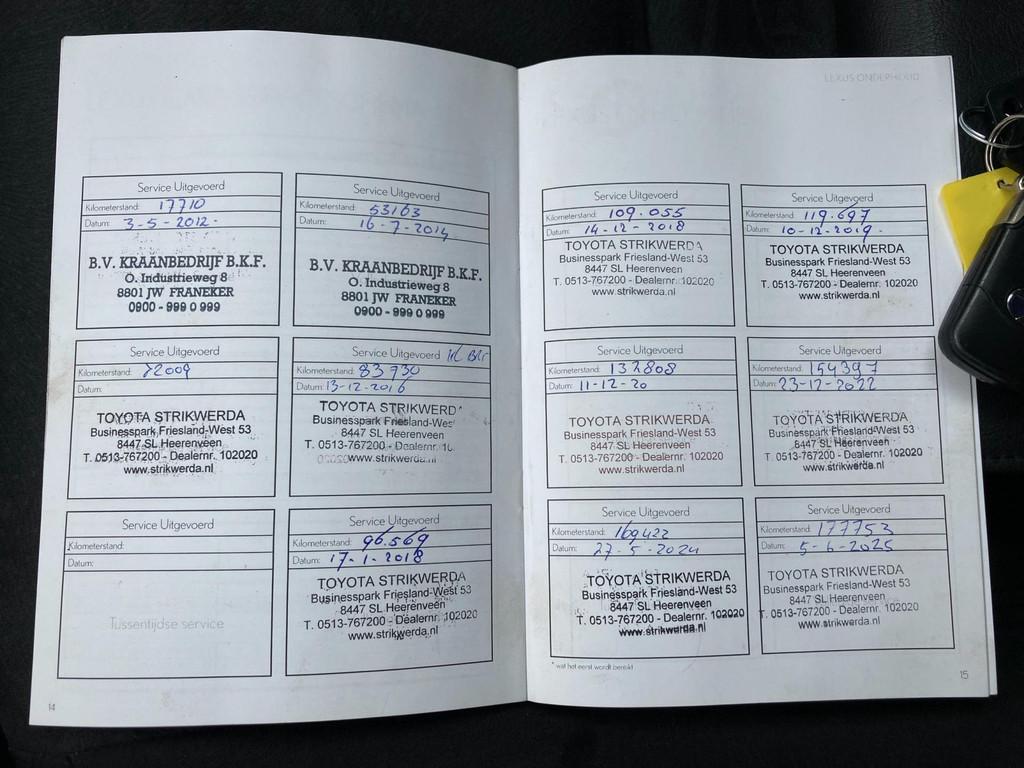 LEXUS ONDERHOUD
Service Uitgevoerd
Kilometerstand: 17710
Datum: 3-5-2012-
B.V. KRAANBEDRIJF B.K.F.
O. Industrieweg 8
8801 JW FRANEKER
0900 - 999 0 999
Service Uitgevoerd
Kilometerstand: 53163
Datum: 16-7-2014
B.V. KRAANBEDRIJF B.K.F.
O. Industrieweg 8
8801 JW FRANEKER
0900 - 999 0 999
Service Uitgevoerd
Kilometerstand: 72009
Datum:
TOYOTA STRIKWERDA
Businesspark Friesland-West 53
8447 SL Heerenveen
T. 0513-767200 - Dealernr. 102020
www.strikwerda.nl
Service Uitgevoerd
Kilometerstand: 83730
Datum: 13-12-2016
TOYOTA STRIKWERD
Businesspark Friesland-Wes
8447 SL Heerenveen
T. 0513-767200 - Dealernr. 10
www.strikwerda.nl
Service Uitgevoerd
Kilometerstand:
Datum:
Tussentijdse service
Service Uitgevoerd
Kilometerstand: 96.569
Datum: 17-1-2018
TOYOTA STRIKWERDA
Businesspark Friesland-West 53
8447 SL Heerenveen
T. 0513-767200 - Dealernr. 102020
www.strikwerda.nl
14
Service Uitgevoerd
Kilometerstand: 109.055
Datum: 14-12-2018
TOYOTA STRIKWERDA
Businesspark Friesland-West 53
8447 SL Heerenveen
T. 0513-767200 - Dealernr. 102020
www.strikwerda.nl
Service Uitgevoerd
Kilometerstand: 119.697
Datum: 10-12-2019.
TOYOTA STRIKWERDA
Businesspark Friesland-West 53
8447 SL Heerenveen
T. 0513-767200 - Dealernr. 102020
www.strikwerda.nl
Service Uitgevoerd
Kilometerstand: 132808
Datum: 11-12-20
TOYOTA STRIKWERDA
Businesspark Friesland-West 53
8447 SL Heerenveen
T. 0513-767200 - Dealernr. 102020
www.strikwerda.nl
Service Uitgevoerd
Kilometerstand: 154397
Datum: 23-12-2022
TOYOTA STRIKWERDA
Businesspark Friesland-West 53
8447 SL Heerenveen
T. 0513-767200 - Dealernr. 102020
www.strikwerda.nl
Service Uitgevoerd
Kilometerstand: 169422
Datum: 27-5-2024
TOYOTA STRIKWERDA
Businesspark Friesland-West 53
8447 SL Heerenveen
T. 0513-767200 - Dealernr. 102020
www.strikwerda.nl
Service Uitgevoerd
Kilometerstand: 177753
Datum: 5-6-2025
TOYOTA STRIKWERDA
Businesspark Friesland-West 53
8447 SL Heerenveen
T. 0513-767200 - Dealernr. 102020
www.strikwerda.nl
* wat het eerst wordt bereikt
15